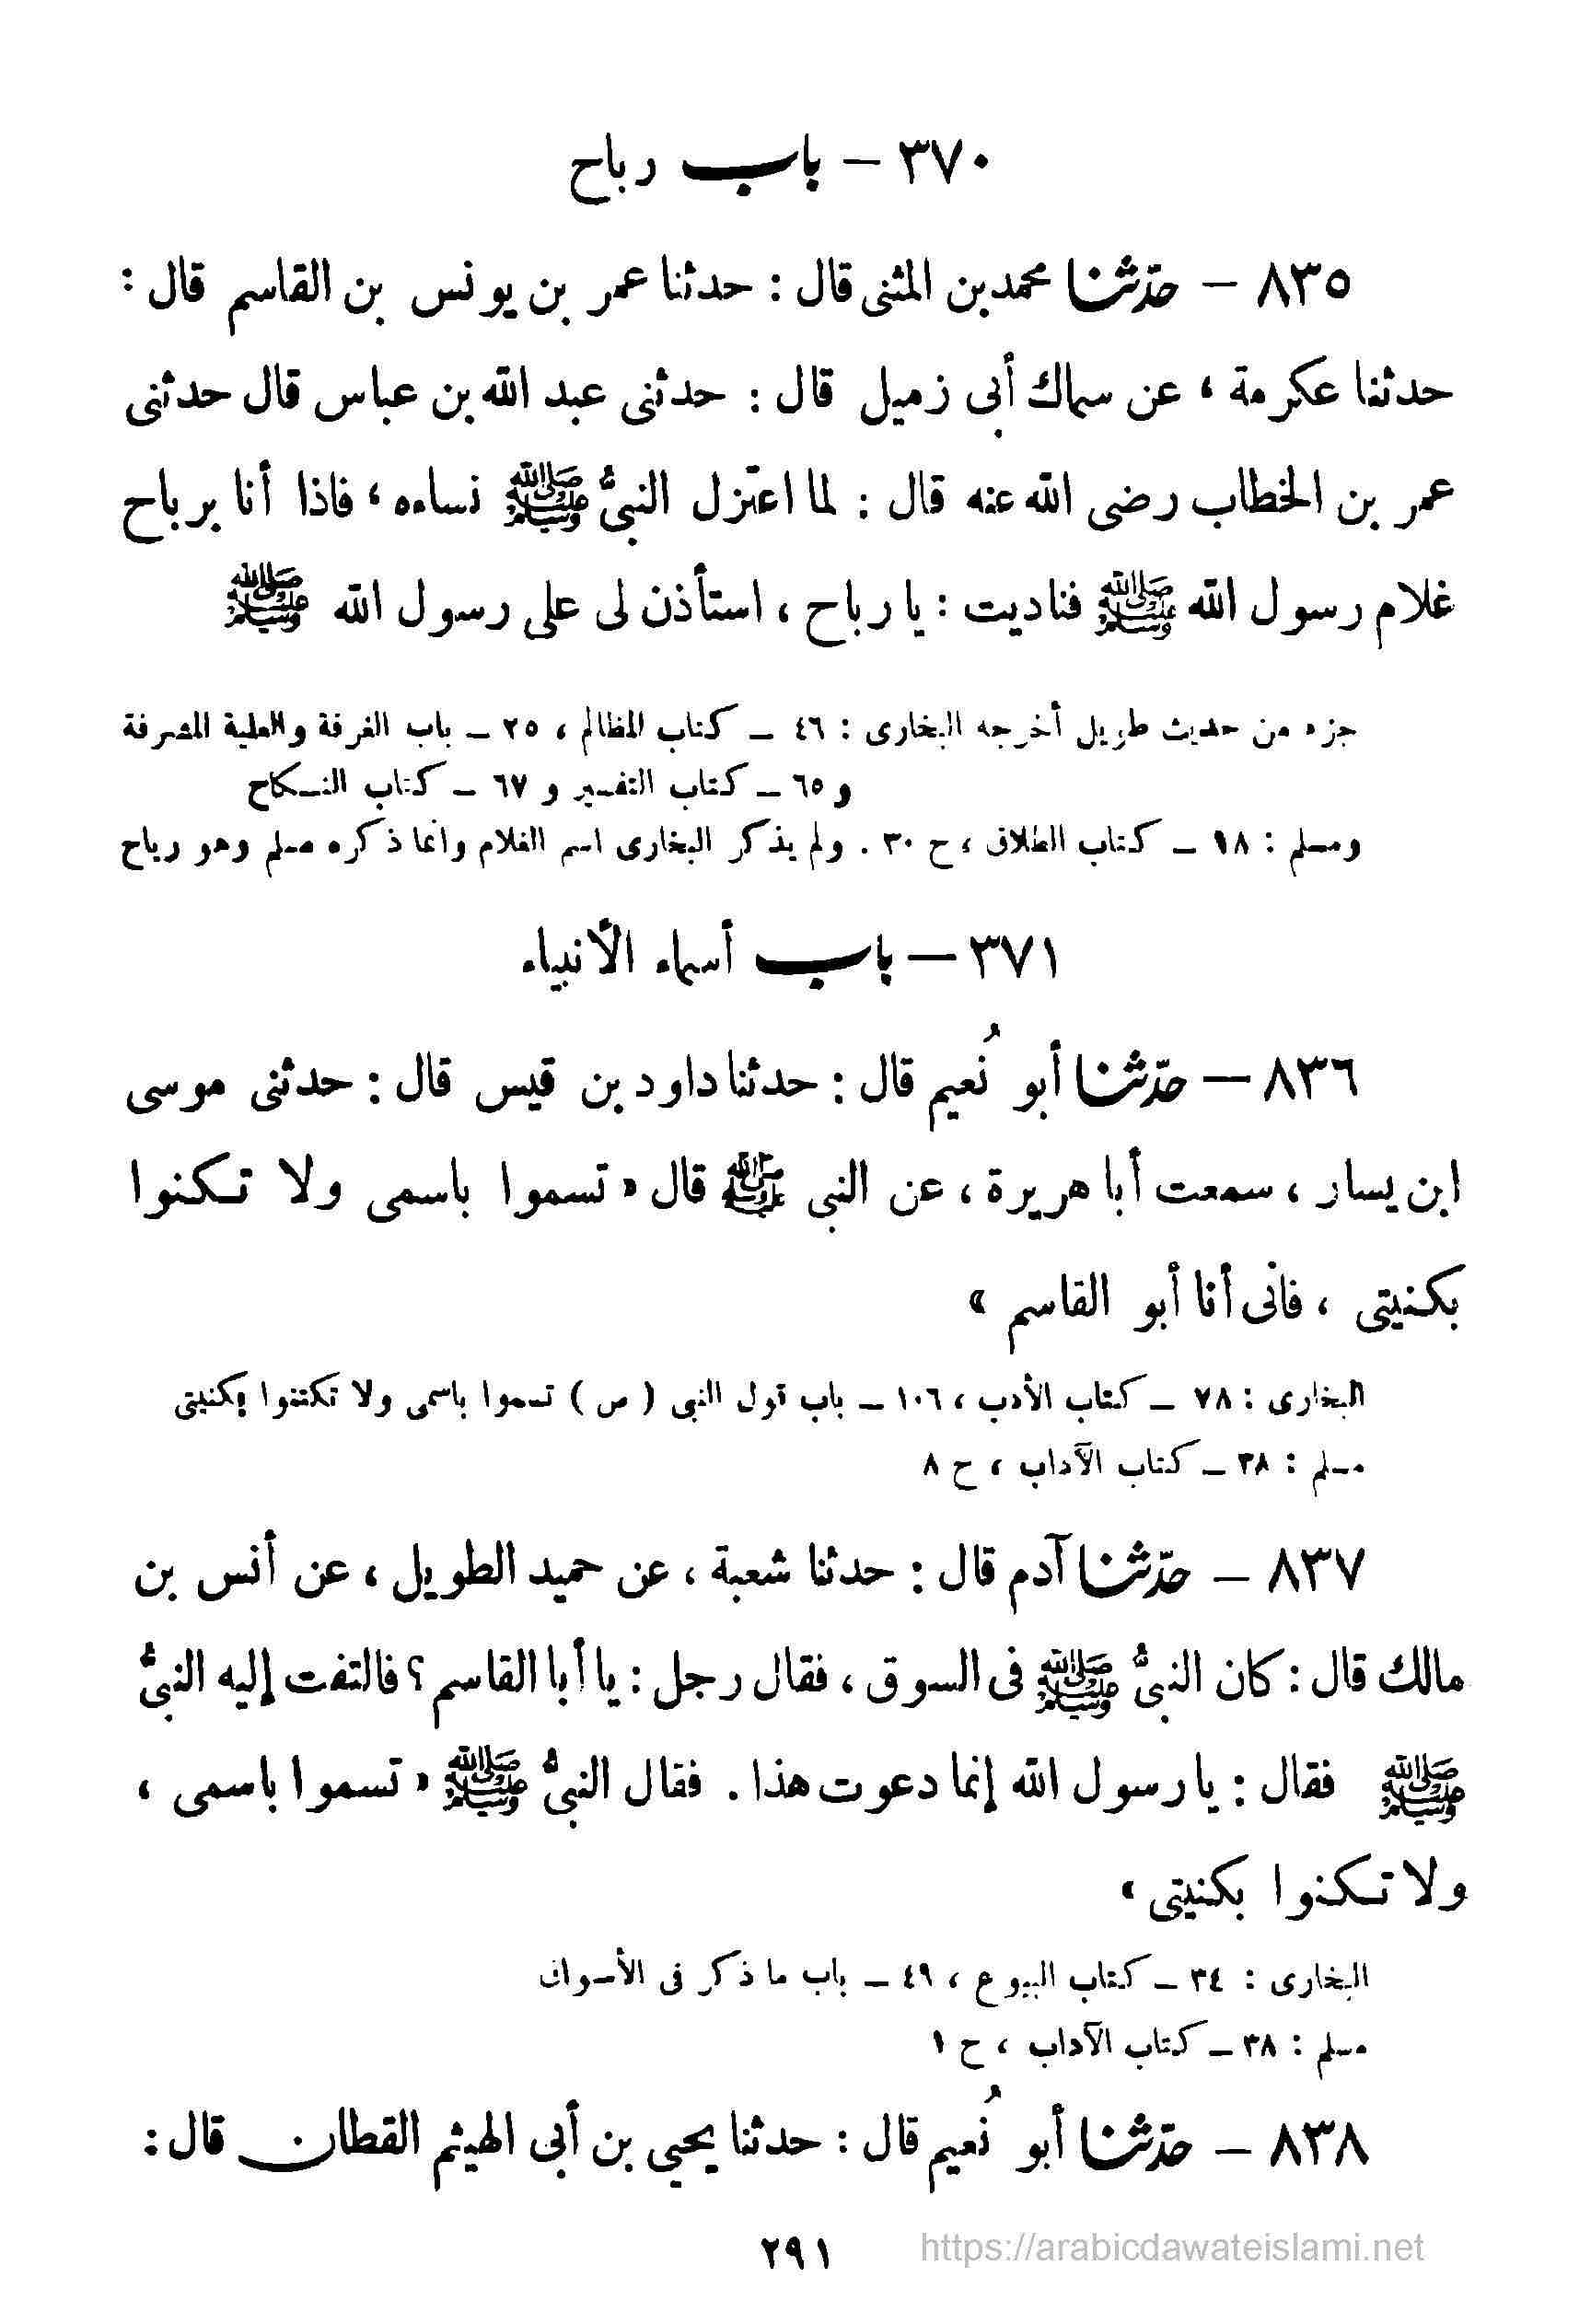 ٣٧٠ – باب رباح
٨٣٥ – حدّثنا محمد بن المثنى قال : حدثنا عمر بن يونس بن القاسم قال :
حدثنا عكرمة ، عن سماك أبى زميل قال : حدثنى عبد الله بن عباس قال حدثنى
عمر بن الخطاب رضى الله عنه قال : لما اعتزل النبىُّ ﷺ نساءه ، فاذا أنا برباح
غلام رسول الله ﷺ فناديت : يا رباح ، استأذن لى على رسول الله ﷺ
جزء من حديث طويل أخرجه البخارى : ٤٦ – كتاب المظالم ، ٢٥ – باب الغرفة والعلية المشرفة
و ٦٥ – كتاب التفسير و ٦٧ – كتاب النكاح
ومسلم : ١٨ – كتاب الطلاق ، ح ٣٠ . ولم يذكر البخارى اسم الغلام وانما ذكره مسلم وهو رباح
٣٧١ – باب أسماء الأنبياء
٨٣٦ – حدّثنا أبو نُعيم قال : حدثنا داود بن قيس قال : حدثنى موسى
ابن يسار ، سمعت أبا هريرة ، عن النبى ﷺ قال « تسموا باسمى ولا تكنوا
بكنيتى ، فانى أنا أبو القاسم »
البخارى : ٧٨ – كتاب الأدب ، ١٠٦ – باب قول النبى ( ص ) تسموا باسمى ولا تكتنوا بكنيتى
مسلم : ٣٨ – كتاب الآداب ، ح ٨
٨٣٧ – حدّثنا آدم قال : حدثنا شعبة ، عن حميد الطويل ، عن أنس بن
مالك قال : كان النبىُّ ﷺ فى السوق ، فقال رجل : يا أبا القاسم ؟ فالتفت إليه النبىُّ
ﷺ فقال : يا رسول الله إنما دعوت هذا . فقال النبىُّ ﷺ « تسموا باسمى ،
ولا تكنوا بكنيتى »
البخارى : ٣٤ – كتاب البيوع ، ٤٩ – باب ما ذكر فى الأسواق
مسلم : ٣٨ – كتاب الآداب ، ح ١
٨٣٨ – حدّثنا أبو نُعيم قال : حدثنا يحيى بن أبى الهيثم القطان قال :
٢٩١
https://arabicdawateislami.net